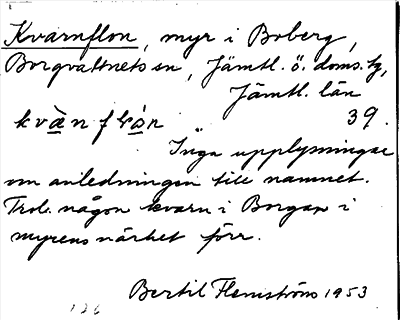 Kvarnflon, myr i Boberg,
Borgvattnets sn, Jämtl. ö. doms. tg,
Jämtl. län
39.
Inga upplysningar
om anledningen till namnet.
Trol. någon kvarn i Borgan i
myrens närhet förr.
Bertil Flemström 1953
126